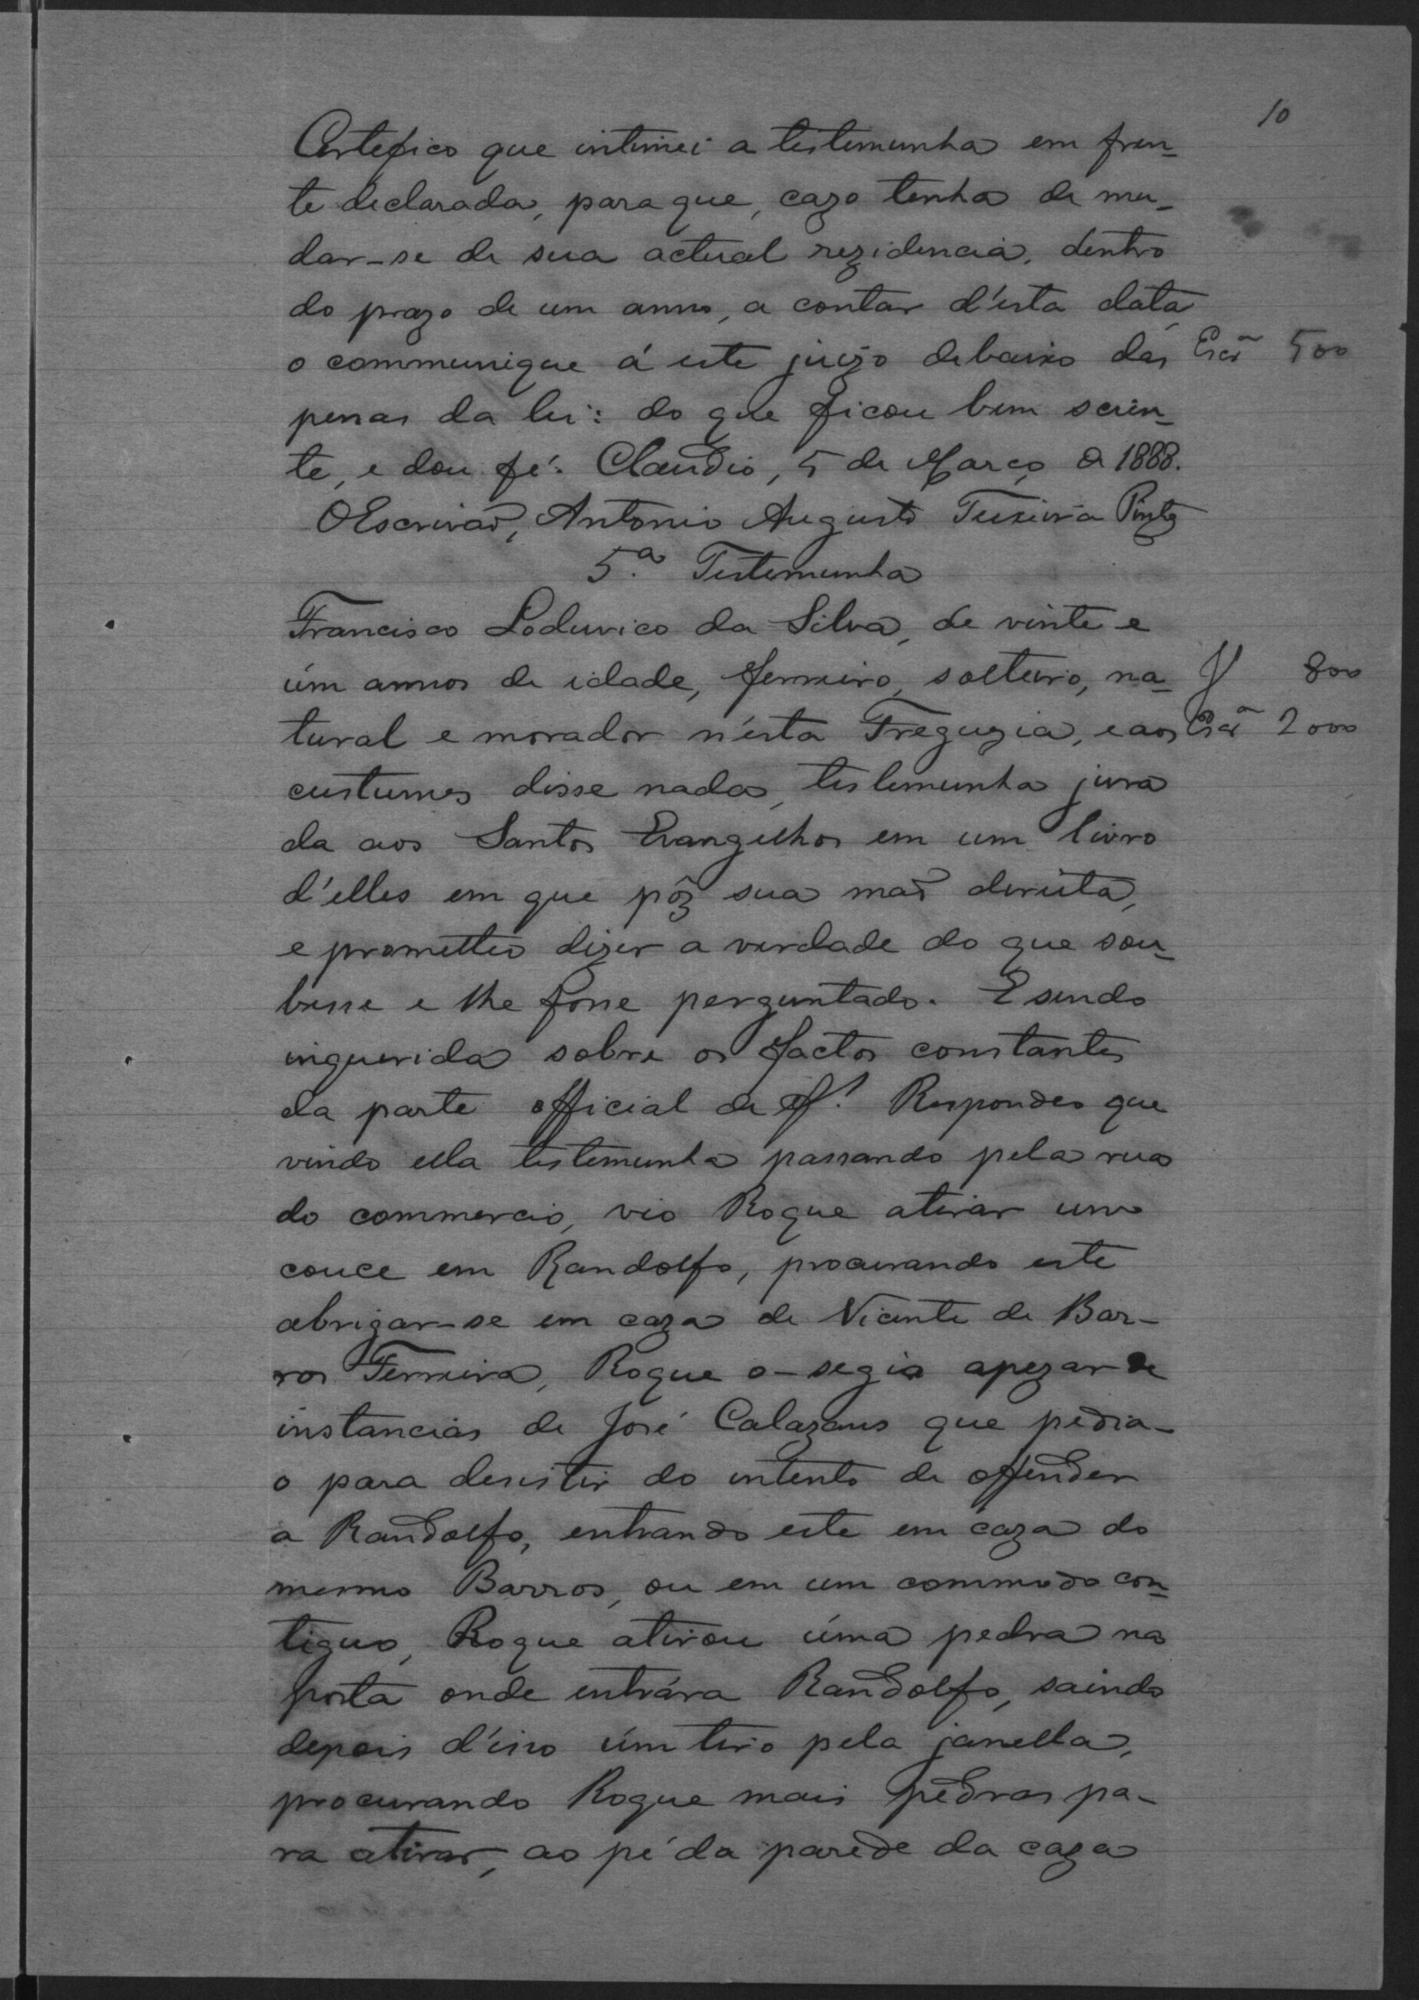 10
Certefico que intimei a testemunha em fren-
te declarada, para que, cazo tenha de mu-
dar-se de sua actual rezidencia, dentro
do prazo de um anno, a contar d'esta data
o communique á este juizo debaixo das Escr.ão 500
penas da lei: do que ficou bem scien-
te, e dou fé. Claudio, 5 de Março de 1888.
O Escrivão, Antonio Augusto Teixeira Pinto
5.a Testemunha
Francisco Loduvico da Silva, de vinte e
úm annos de idade, ferreiro, solteiro, na- J 800
tural e morador n'esta Freguzia, e aos Escr.ão 2000
custumes disse nada, testemunha jura
da aos Santos Evangelhos em um livro
d'elles em que pôz sua mão direita,
e prometteo dizer a verdade do que sou-
besse e lhe fosse perguntado. E sendo
inquerida sobre os factos constantes
da parte official de f. Respondeo que
vindo ella testemunha passando pela rua
do commercio, vio Roque atirar um
couce em Randolfo, procurando este
abrigar-se em caza de Vicente de Bar-
ros Ferreira, Roque o-segia apezar de
instancias de José Calazans que pedia-
o para desistir do intento de offender
a Randolfo, entrando este em caza do
mesmo Barros, ou em um commodo con-
tiguo, Roque atirou úma pedra na
porta onde entrára Randolfo, saindo
depois d'isso úm tiro pela janella,
procurando Roque mais pedras pa-
ra atirar, ao pé da parede da caza